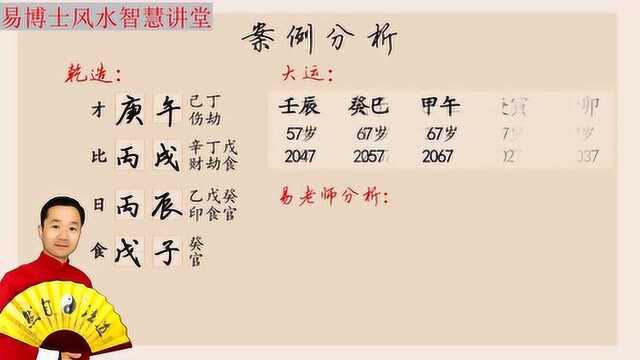 易博士风水智慧讲堂
案例分析
乾造：
才 庚 午 己丁
伤劫
比 丙 戌 辛丁戊
财劫食
日 丙 辰 乙戊癸
印食官
食 戊 子 癸
官
大运：
壬辰 癸巳 甲午 寅 卯
57岁 67岁 67岁
2047 2057 2067 027 037
易老师分析：
然自法道